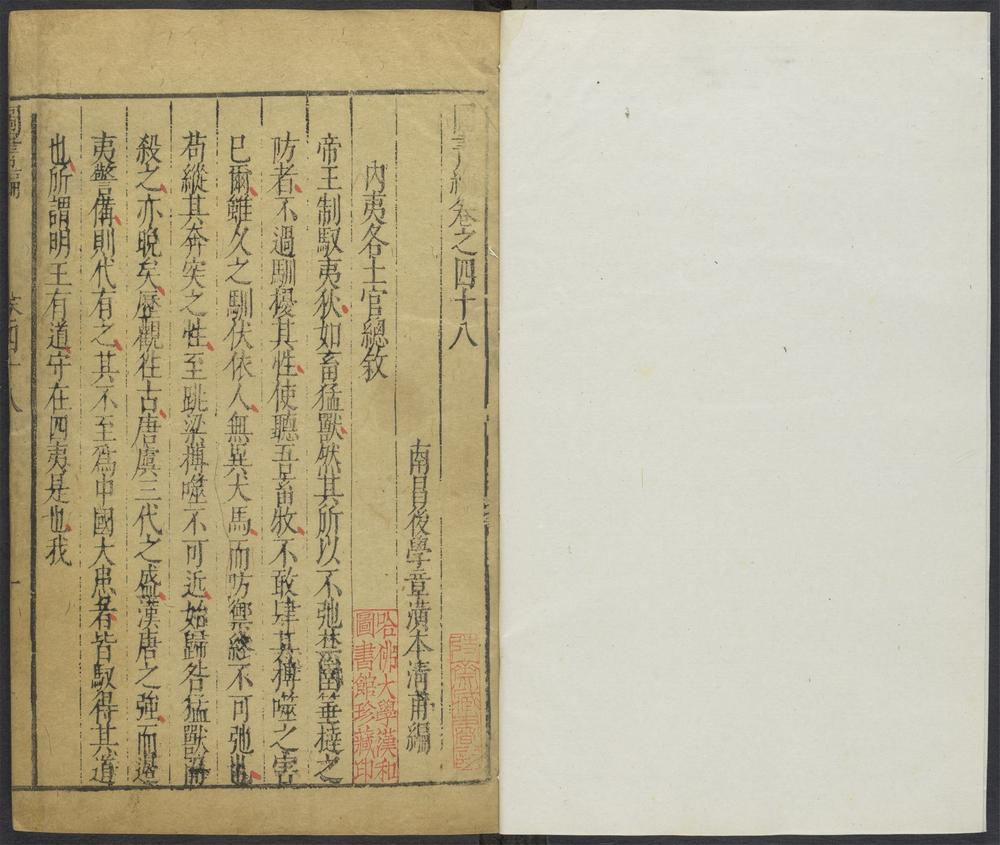 圖書編卷之四十八
南昌後學章潢本清甫編
內夷各土官總敘
帝王制馭夷狄如畜猛獸然其所以不弛柙箠檛之
防者不過馴擾其性使聽吾畜牧不敢肆其搏噬之害
已爾雖久之馴伏依人無異犬馬而防禦終不可弛也
苟縱其奔突之性至跳梁搏噬不可近始歸咎猛獸
殺之亦晚矣歷觀徃古唐虞三代之盛漢唐之強而邊
夷警備則代有之其不至爲中國大患者皆馭得其道
也所謂明王有道守在四夷是也我
圖書編
卷四十八
一
哈佛大學漢和
圖書館珍藏印